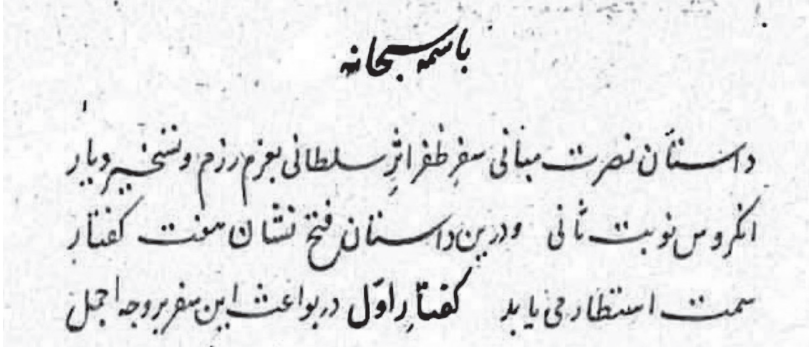 باسمه سبحانه
داستان نصرت مبانی سفر ظفر اثر سلطانی بعزم رزم و تسخیر دیار
انکروس نوبت ثانی و درین داستان فتح نشان هفت کفتار
سمت استظار می یابد کفتار اوّل در بواعث این سفر بر وجه اجمل